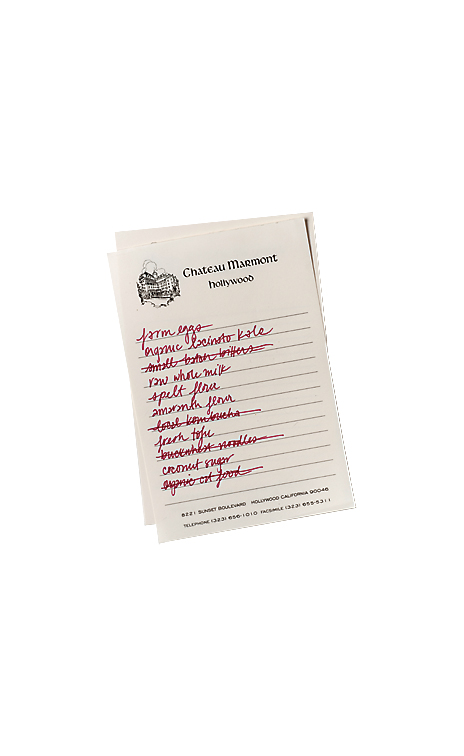 Chateau Marmont
hollywood
farm eggs
organic lacinato kale
small batch bitters
raw whole milk
spelt flour
amaranth flour
local kombucha
fresh tofu
buckwheat noodles
coconut sugar
organic cat food
8221 SUNSET BOULEVARD HOLLYWOOD CALIFORNIA 90046
TELEPHONE (323) 656-1010 FACSIMILE (323) 655-5311